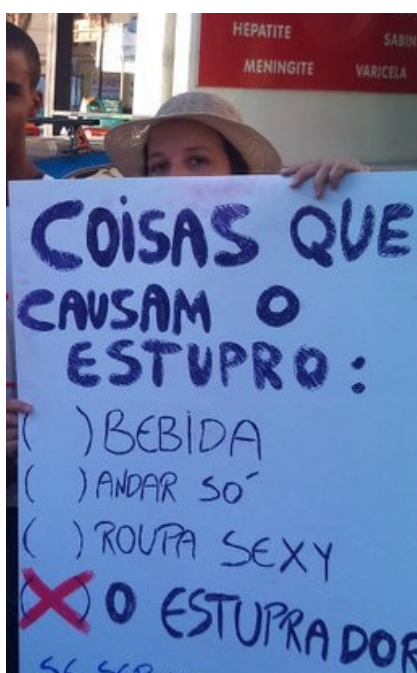 HEPATITE
SABIN
MENINGITE VARICELA
COISAS QUE
CAUSAM O
ESTUPRO:
( ) BEBIDA
( ) ANDAR SÓ
( ) ROUPA SEXY
(X) O ESTUPRADOR